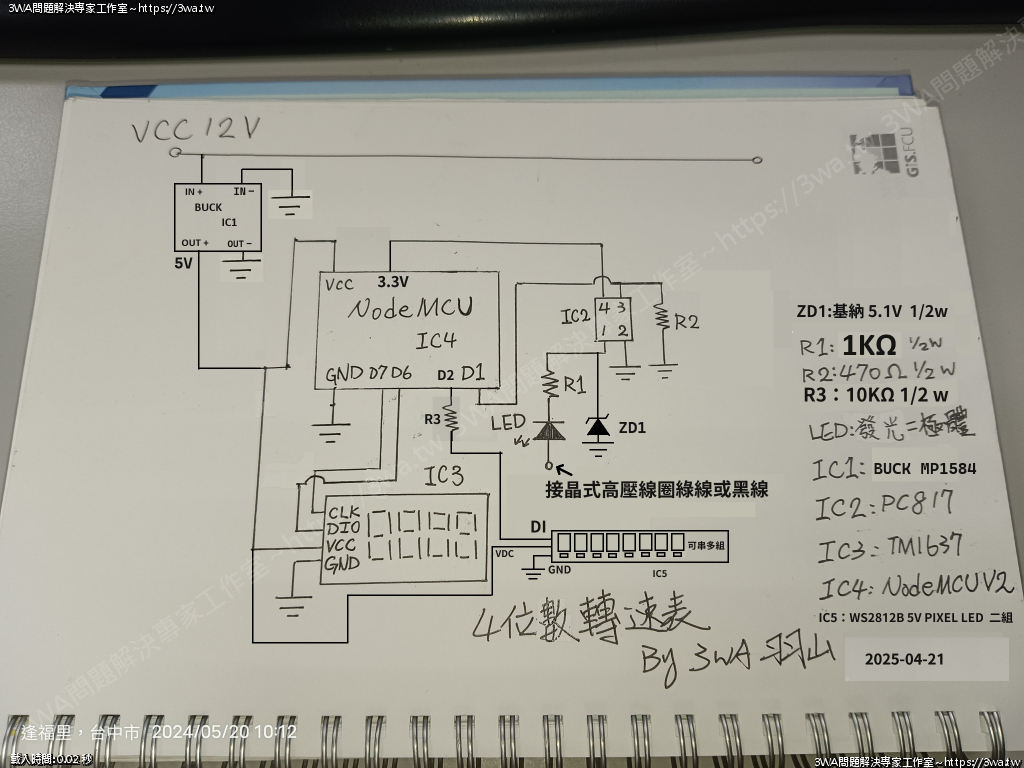 3WA問題解決專家工作室~https://3wa.tw
VCC 12V
GIS.FCU
IN + IN -
BUCK
IC1
OUT + OUT -
5V
VCC 3.3V
NodeMCU
IC4
GND D7 D6 D2 D1
IC2
4 3
1 2
R2
R1
R3
LED
ZD1
接晶式高壓線圈綠線或黑線
IC3
CLK
DIO
VCC
GND
DI
VDC
GND
可串多組
IC5
ZD1:基納 5.1V 1/2w
R1: 1KΩ 1/2w
R2:470Ω 1/2 w
R3：10KΩ 1/2 w
LED:發光二極體
IC1: BUCK MP1584
IC2:PC817
IC3: TM1637
IC4: NodeMCU V2
IC5：WS2812B 5V PIXEL LED 二組
4位數轉速表
By 3WA 羽山
2025-04-21
3WA問題解決專家工作室~https://3wa.tw
逢福里，台中市 2024/05/20 10:12
載入時間:0.02 秒
3WA問題解決專家工作室~https://3wa.tw